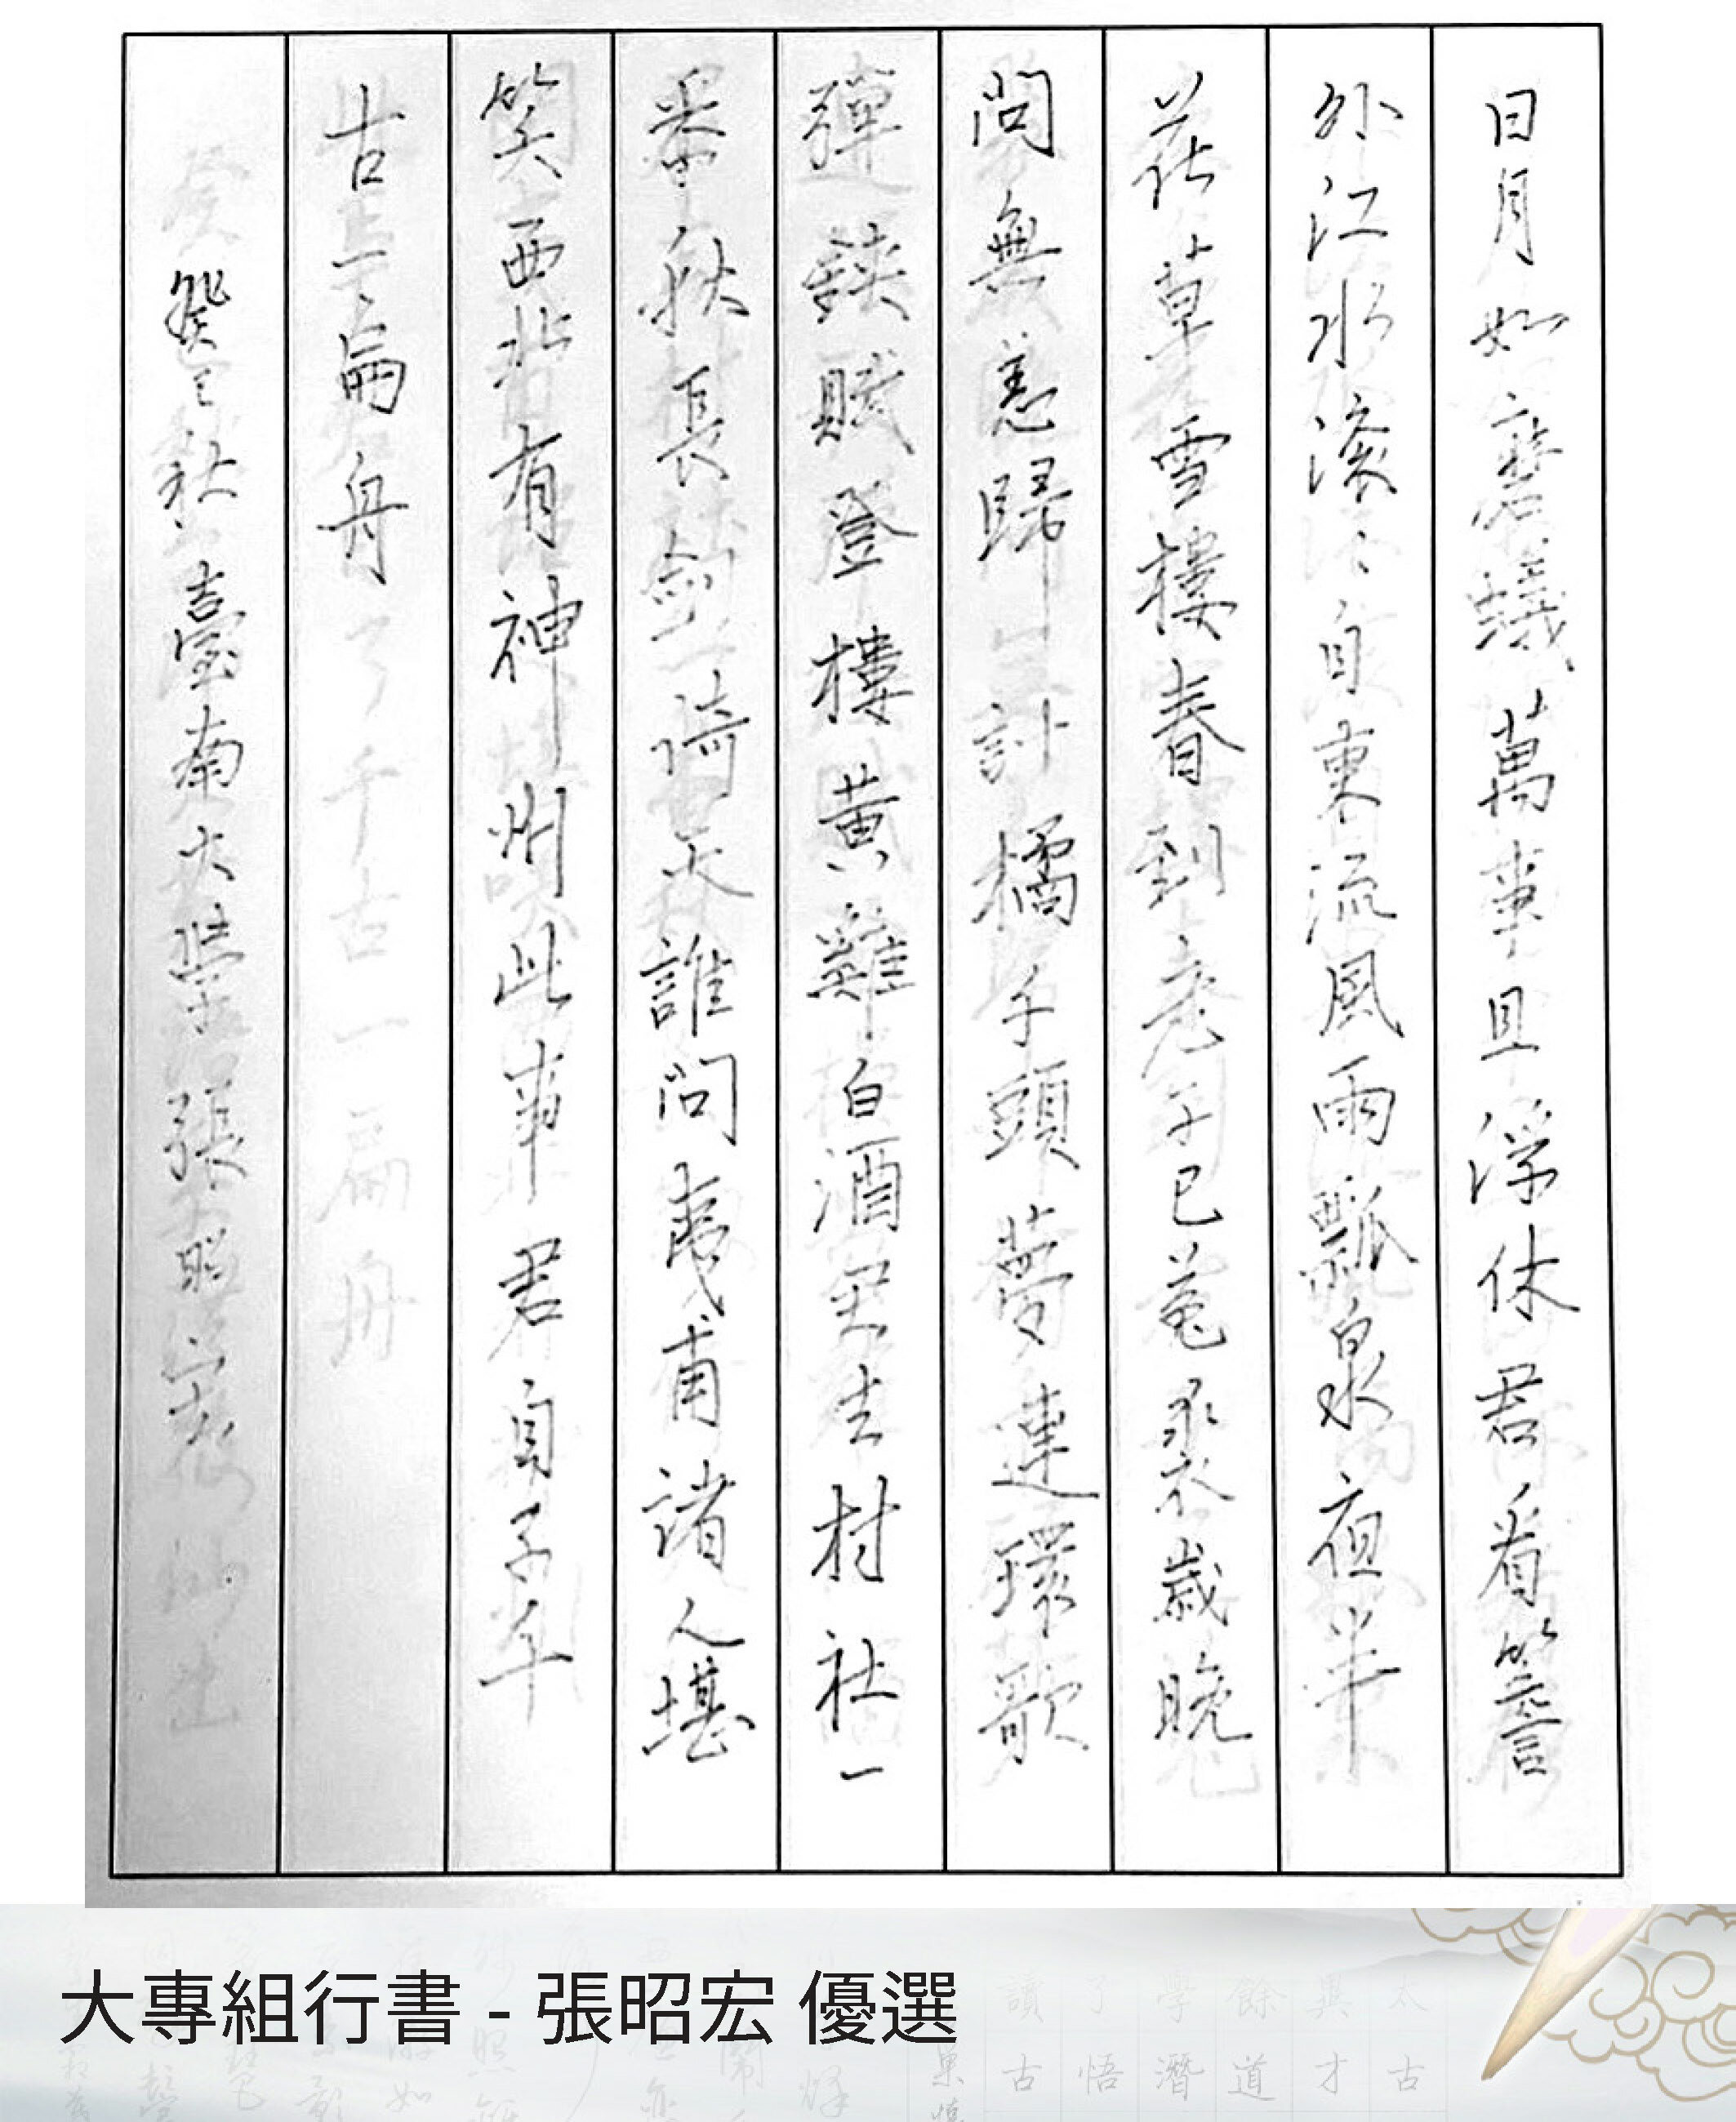 日月如磨蟻萬事且浮休君看簷
外江水滾〻自東流風雨瓢泉夜半
花草雪樓春到老子已菟裘歲晚
問無恙歸計橘千頭夢連環歌
彈鋏賦登樓黃雞白酒君去村社一
番秋長劍倚天誰問夷甫諸人堪
笑西北有神州此事君自了千
古一扁舟
臺南大學張昭宏
大專組行書 - 張昭宏 優選